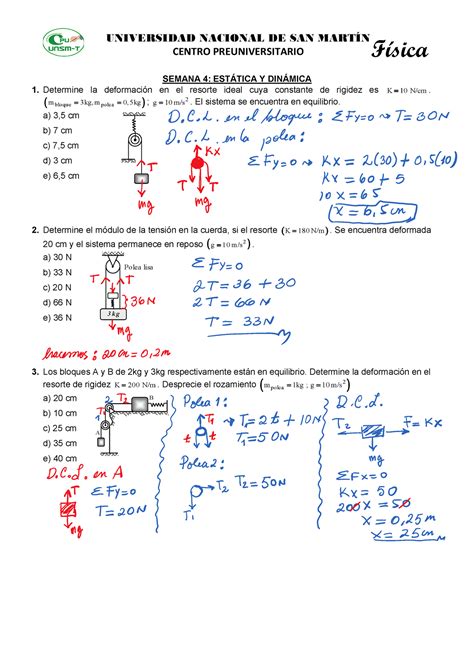 CPU
UNSM-T
UNIVERSIDAD NACIONAL DE SAN MARTÍN
CENTRO PREUNIVERSITARIO
Física
SEMANA 4: ESTÁTICA Y DINÁMICA
1. Determine la deformación en el resorte ideal cuya constante de rigidez es K = 10 N/cm .
(m bloque = 3kg, m polea = 0,5kg) ; g = 10 m/s² . El sistema se encuentra en equilibrio.
a) 3,5 cm
b) 7 cm
c) 7,5 cm
d) 3 cm
e) 6,5 cm
T
mg
D.C.L. en el bloque : ΣFy=0 → T = 30N
D.C.L. en la polea :
Kx
T T
mg
ΣFy=0 → Kx = 2(30) + 0,5(10)
Kx = 60 + 5
10 x = 65
x = 6,5cm
2. Determine el módulo de la tensión en la cuerda, si el resorte (K = 180 N/m) . Se encuentra deformada
20 cm y el sistema permanece en reposo (g = 10 m/s²) .
a) 30 N
b) 33 N
c) 20 N
d) 66 N
e) 36 N
Polea lisa
T T
36N
3kg
mg
ΣFy=0
2T = 36 + 30
2T = 66N
T = 33N
hacemos : 20cm = 0,2m
3. Los bloques A y B de 2kg y 3kg respectivamente están en equilibrio. Determine la deformación en el
resorte de rigidez K = 200 N/m . Desprecie el rozamiento (m poleas = 1kg ; g = 10 m/s²)
a) 20 cm
b) 10 cm
c) 25 cm
d) 35 cm
e) 40 cm
2 T2
B
T1
1
A
D.C.L. en A
T
mg
ΣFy=0
T = 20N
Polea 1 :
T1
t t
T1 = 2t + 10N
T1 = 50N
Polea 2 :
T2
T1
T2 = 50N
D.C.L.
T2
F = Kx
mg
ΣFx=0
Kx = 50
200x = 50
x = 0,25m
x = 25cm